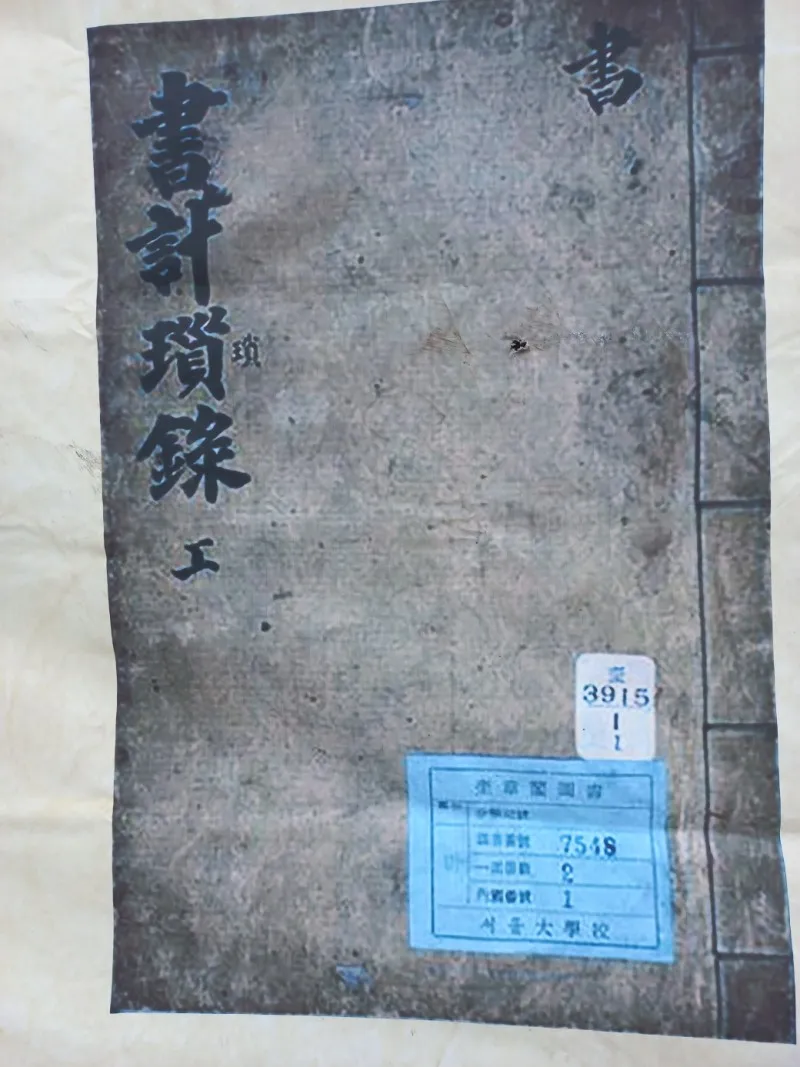 書
書計瑣錄 工
瑣
3915
1
1
奎章閣圖書
圖書番號 7548
一部冊數 2
內冊番號 1
서울大學校